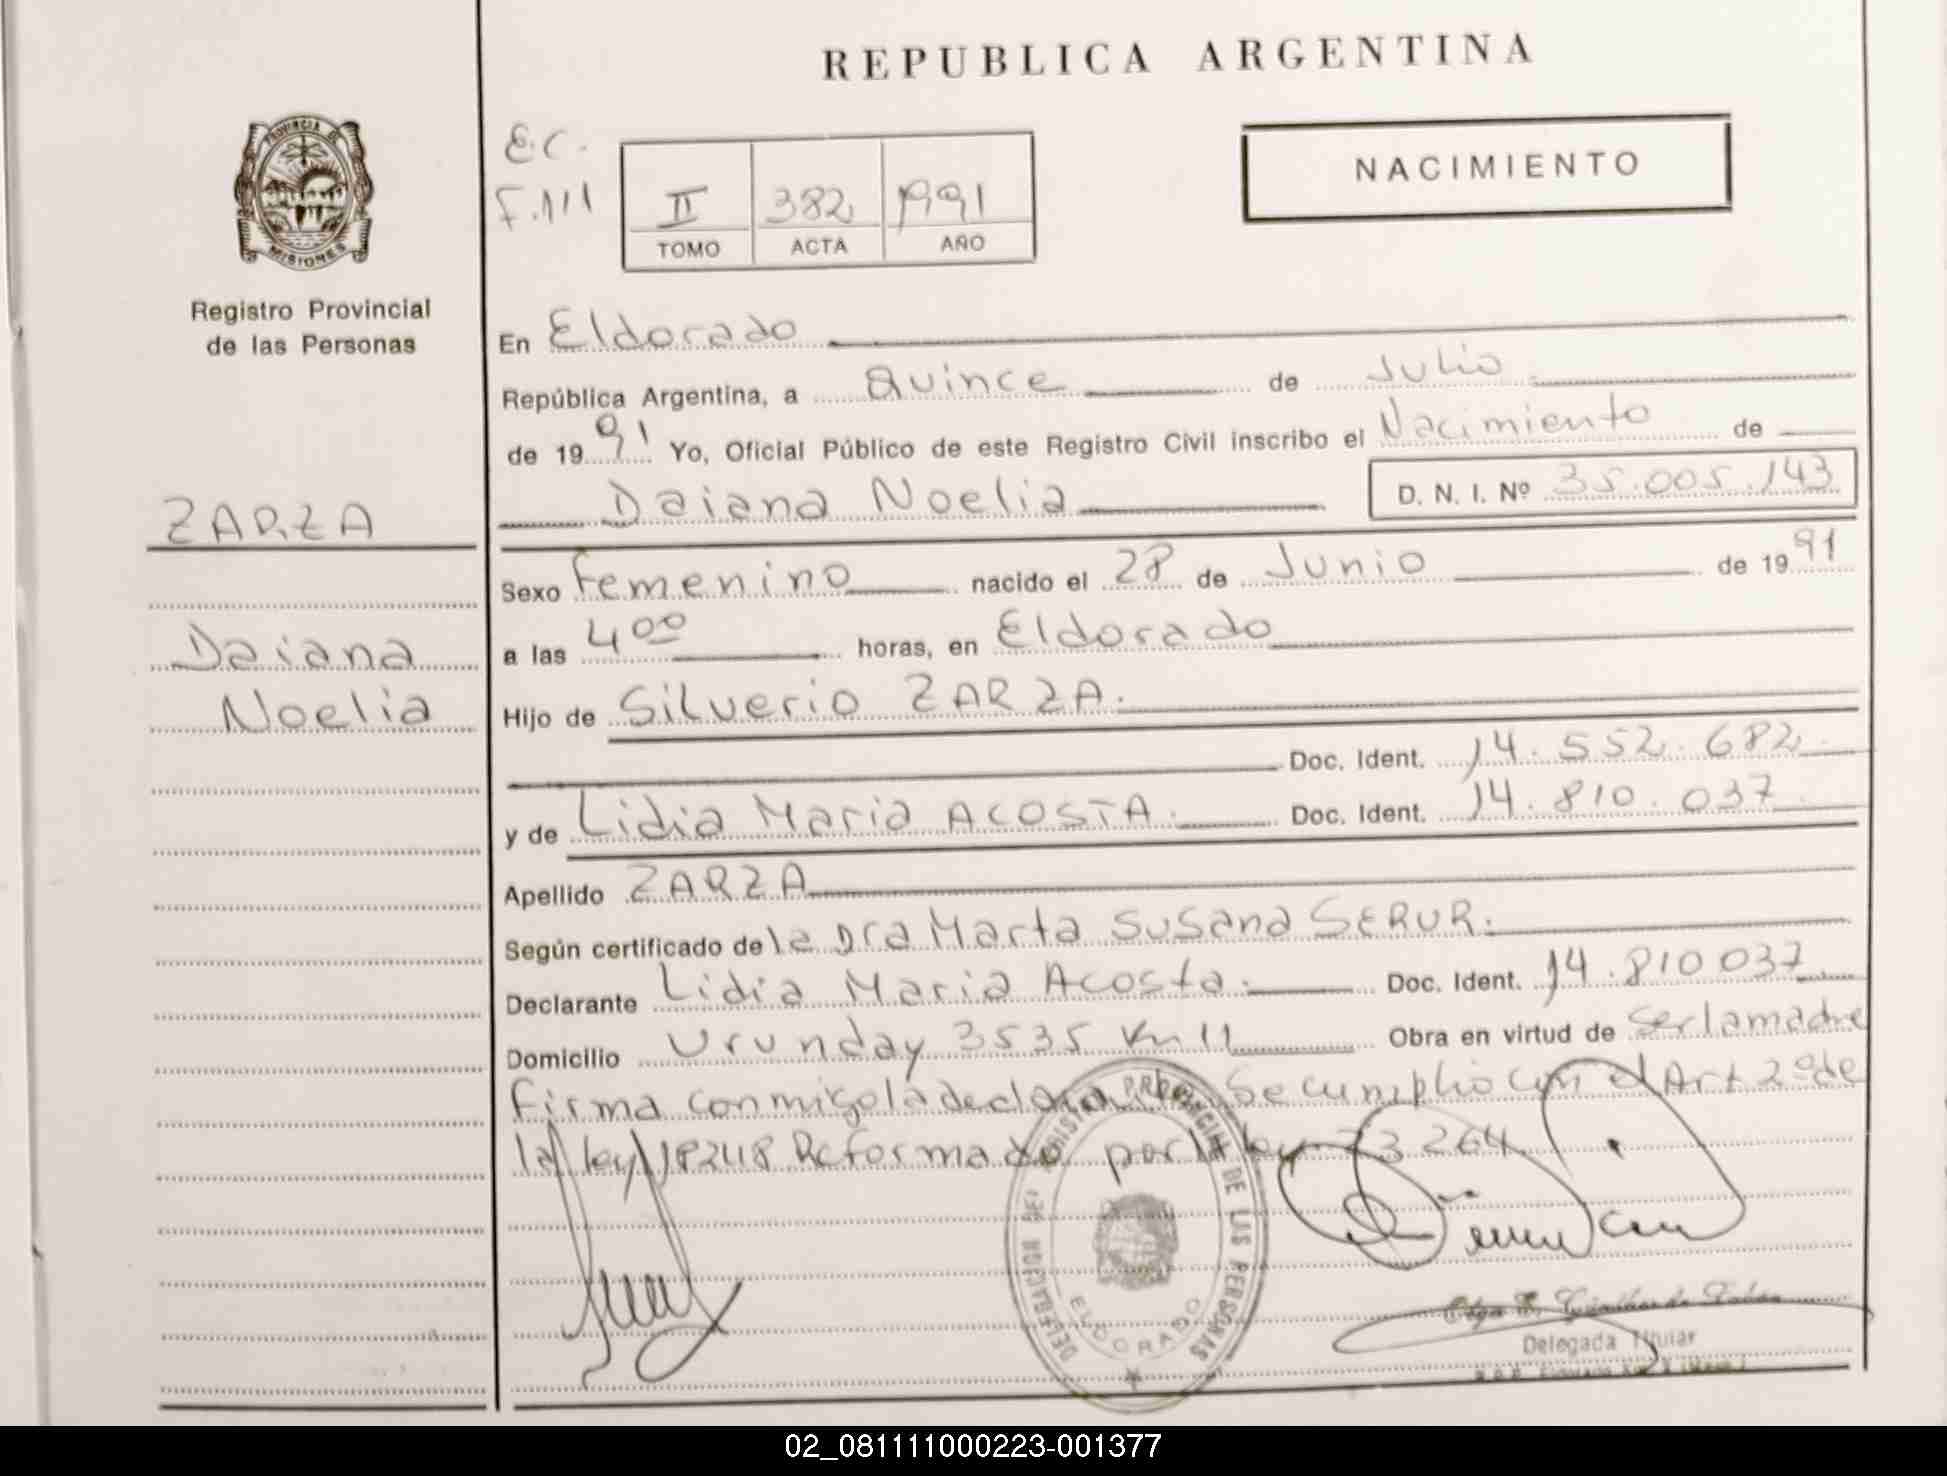 REPUBLICA ARGENTINA
PROVINCIA DE MISIONES
Registro Provincial
de las Personas
E.C.
F.111
II 382 1991
TOMO ACTA AÑO
NACIMIENTO
En Eldorado
República Argentina, a Quince de Julio
de 1991 Yo, Oficial Público de este Registro Civil inscribo el Nacimiento de
Daiana Noelia D. N. I. Nº 35.005.143
ZARZA
Daiana
Noelia
Sexo Femenino nacido el 28 de Junio de 1991
a las 4 00 horas, en Eldorado
Hijo de Silverio ZARZA.
Doc. Ident. 14.552.682
y de Lidia Maria ACOSTA. Doc. Ident. 14.810.037
Apellido ZARZA
Según certificado de la Dra Marta Susana SERUR.
Declarante Lidia Maria Acosta. Doc. Ident. 14.810037
Domicilio Urunday 3535 Km 11 Obra en virtud de ser la madre
Firma conmigo la declarante Se cumplio con el Art 2º de
la ley 18248 Reformado por la ley 23264
DELEGACION DEL REGISTRO PROVINCIAL DE LAS PERSONAS
ELDORADO
Delegada Titular
02_081111000223-001377